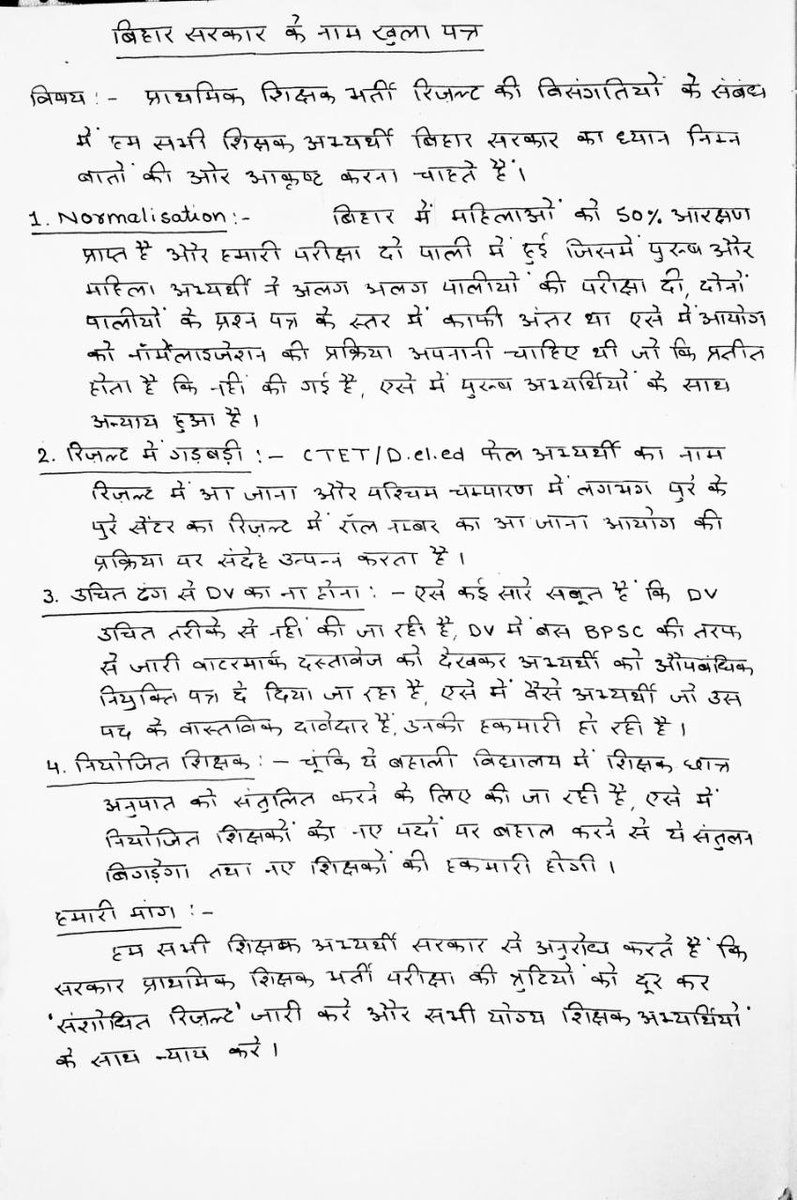 बिहार सरकार के नाम खुला पत्र
विषय :- प्राथमिक शिक्षक भर्ती रिजल्ट की विसंगतियों के संबंध
में हम सभी शिक्षक अभ्यर्थी बिहार सरकार का ध्यान निम्न
बातों की ओर आकृष्ट करना चाहते हैं।
1. Normalisation :- बिहार में महिलाओं को 50% आरक्षण
प्राप्त है और हमारी परीक्षा दो पाली में हुई जिसमें पुरुष और
महिला अभ्यर्थी ने अलग अलग पालीयों की परीक्षा दी, दोनों
पालीयों के प्रश्न पत्र के स्तर में काफी अंतर था एसे में आयोग
को नॉर्मेलाइजेशन की प्रक्रिया अपनानी चाहिए थी जो कि प्रतीत
होता है कि नहीं की गई है, एसे में पुरुष अभ्यर्थियों के साथ
अन्याय हुआ है।
2. रिज़ल्ट में गड़बड़ी :- CTET/D.el.ed फेल अभ्यर्थी का नाम
रिज़ल्ट में आ जाना और पश्चिम चम्पारण में लगभग पुरे के
पुरे सेंटर का रिज़ल्ट में रॉल नम्बर का आ जाना आयोग की
प्रक्रिया पर संदेह उत्पन्न करता है।
3. उचित ढंग से DV का ना होना :- एसे कई सारे सबूत हैं कि DV
उचित तरीके से नहीं की जा रही है, DV में बस BPSC की तरफ
से जारी वाटरमार्क दस्तावेज को देखकर अभ्यर्थी को औपबंधिक
नियुक्ति पत्र दे दिया जा रहा है, एसे में वैसे अभ्यर्थी जो उस
पद के वास्तविक दावेदार हैं, उनकी हकमारी हो रही है।
4. नियोजित शिक्षक :- चूंकि ये बहाली विद्यालय में शिक्षक छात्र
अनुपात को संतुलित करने के लिए की जा रही है, एसे में
नियोजित शिक्षकों को नए पदों पर बहाल करने से ये संतुलन
बिगड़ेगा तथा नए शिक्षकों की हकमारी होगी।
हमारी मांग :-
हम सभी शिक्षक अभ्यर्थी सरकार से अनुरोध करते हैं कि
सरकार प्राथमिक शिक्षक भर्ती परीक्षा की त्रुटियों को दूर कर
'संशोधित रिज़ल्ट' जारी करे और सभी योग्य शिक्षक अभ्यर्थियों
के साथ न्याय करे।